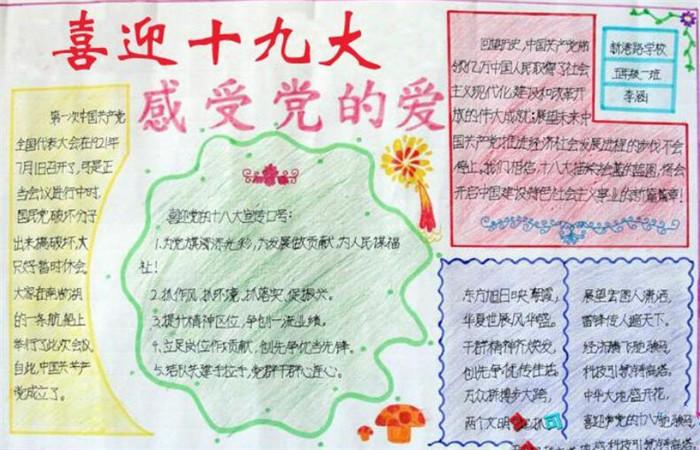 喜迎十九大
感受党的爱
第一次中国共产党
全国代表大会在1921年
7月1日召开了,可是正
当会议进行中时,
国民党破坏分子
出来搞破坏,大
只好暂时休会,
大家在南湖湖
的一条航船上
举行了此次会议,
自此,中国共产
党成立了。
喜迎党的十八大宣传口号:
1.为党旗添光彩,为发展做贡献,为人民谋福
祉!
2.抓作风,抓环境,抓落实,促振兴。
3.提升精神区位,争创一流业绩。
4.立足岗位作贡献,创先争优当先锋。
5.结队共建手拉手,党群干群心连心。
回望历史,中国共产党带
领亿万中国人民取得了社会
主义现代化建设和改革开
放的伟大成就;展望未来,中
国共产党推进经济社会发展进程的步伐不会
停止。我们相信,十八大描绘绘的蓝图,将会
开启中国建设特色社会主义事业的新篇章!
新港路学校
五年级一班
李涵
东方旭日映朝霞,
华夏世展风华盛。
干群精神齐焕发,
创先争优传佳话。
万众新攀步大跨,
两个文明
展望宏图人潇洒,
雷锋传人遍天下。
经济腾飞驰骏马,
科技引领铸高塔。
中华大地盛开花,
喜迎党的十八大
科技引领铸高塔